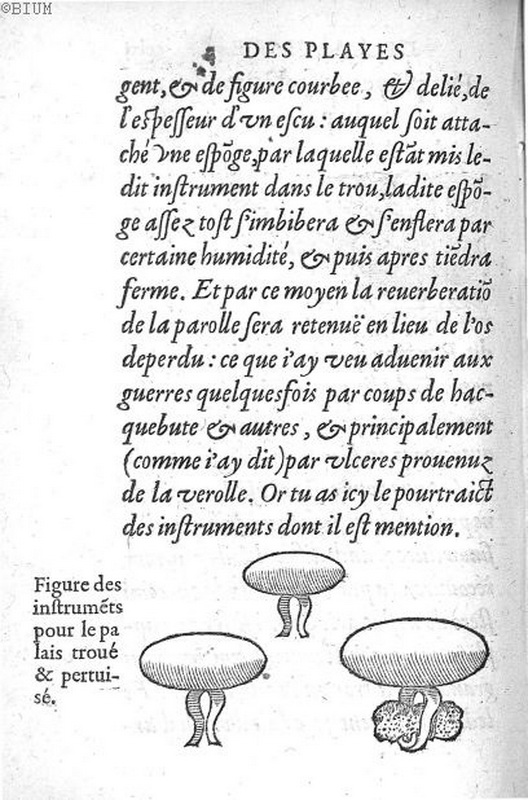 ©BIUM
DES PLAYES
gent, & de figure courbee, & delié, de
l'espesseur d'vn escu: auquel soit atta-
ché vne espõge, par laquelle estãt mis le-
dit instrument dans le trou, ladite espõ-
ge assez tost s'imbibera & s'enflera par
certaine humidité, & puis apres tiẽdra
ferme. Et par ce moyen la reuerberatiõ
de la parolle sera retenuë en lieu de l'os
deperdu: ce que i'ay veu aduenir aux
guerres quelquesfois par coups de hac-
quebute & autres, & principalement
(comme i'ay dit) par vlceres prouenuz
de la verolle. Or tu as icy le pourtraict
des instruments dont il est mention.
Figure des
instrumẽts
pour le pa
lais troué
& pertui-
sé.